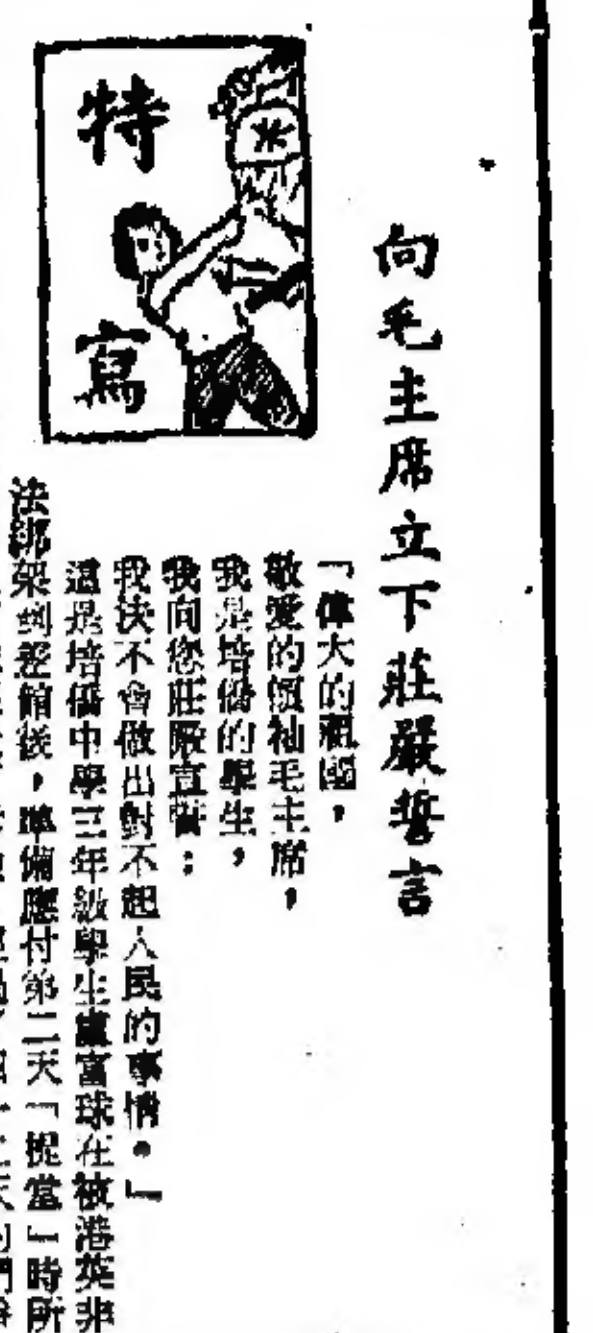 特寫
米
向毛主席立下莊嚴誓言
「偉大的祖國，
敬愛的領袖毛主席，
我是培僑的學生，
我向您莊嚴宣誓：
我決不會做出對不起人民的事情。」
這是培僑中學三年級學生盧富球在被港英非
法綁架到差館後，準備應付第二天「提堂」時所